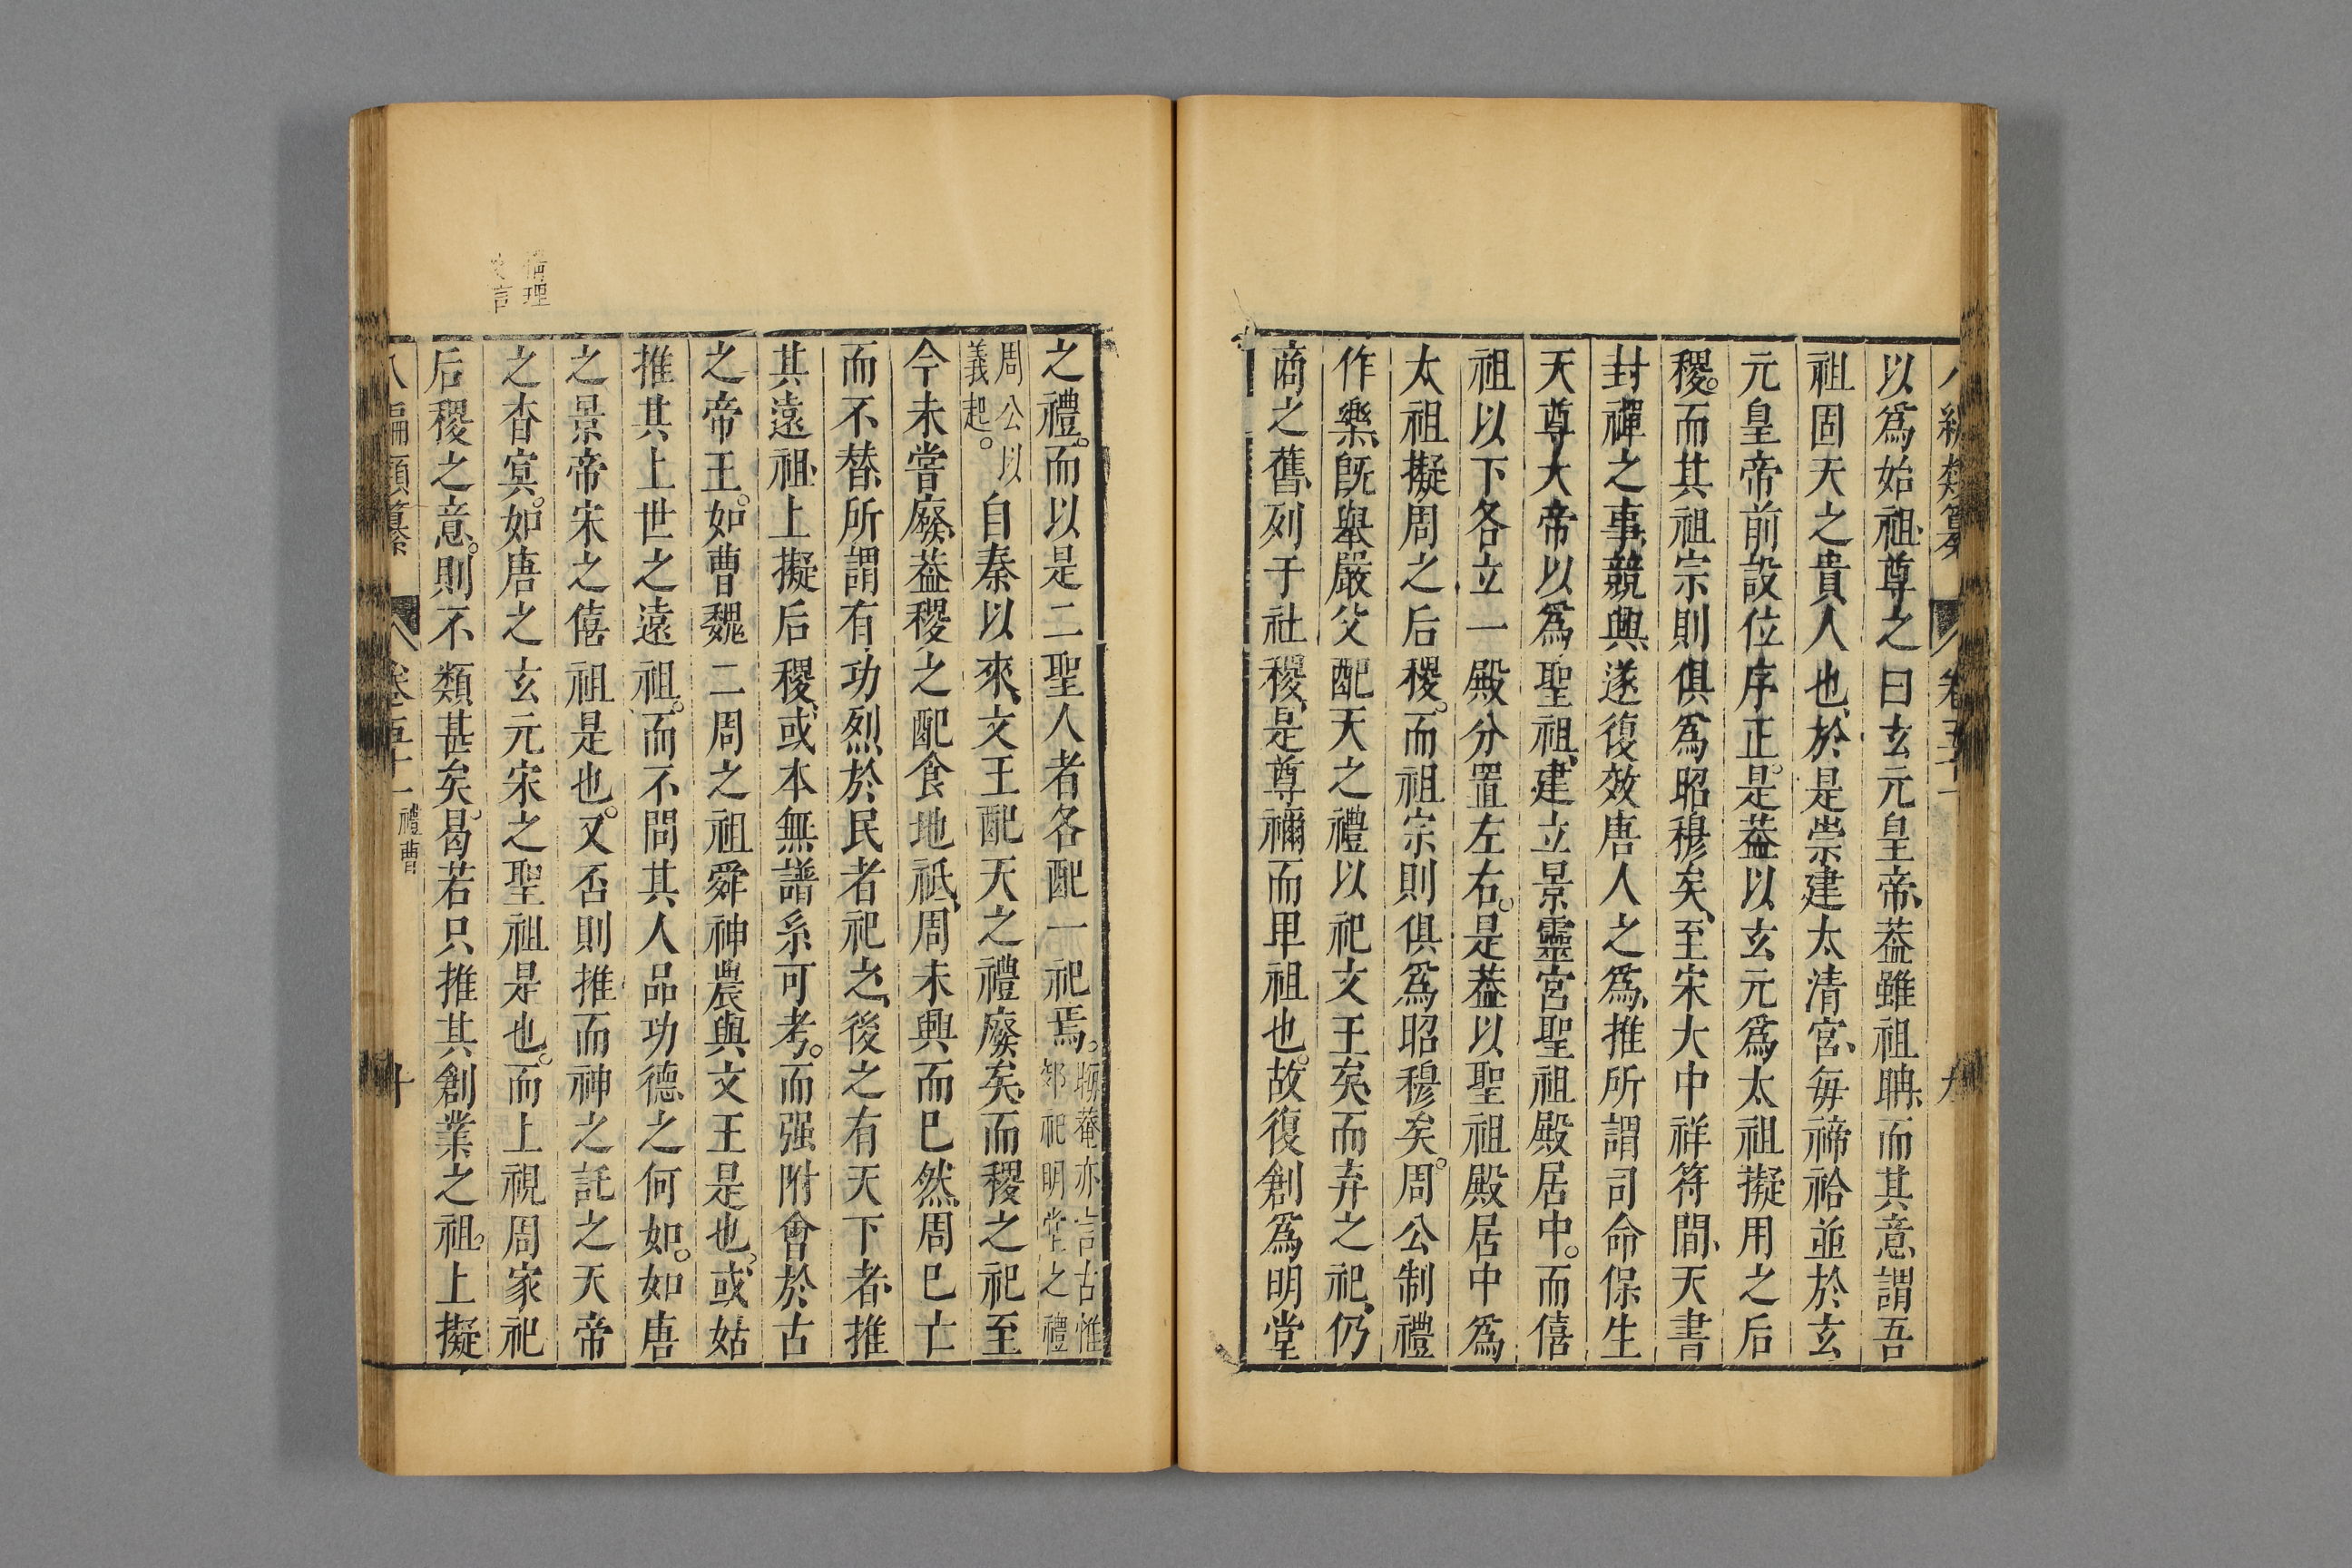 八編類纂 卷五十一 九
以爲始祖尊之曰玄元皇帝蓋雖祖聃而其意謂吾
祖固天之貴人也於是崇建太清宮每禘祫並於玄
元皇帝前設位序正是葢以玄元爲太祖擬用之后
稷而其祖宗則俱爲昭穆矣至宋大中祥符間天書
封禪之事競興遂復效唐人之爲推所謂司命保生
天尊大帝以爲聖祖建立景靈宮聖祖殿居中而僖
祖以下各立一殿分置左右是葢以聖祖殿居中爲
太祖擬周之后稷而祖宗則俱爲昭穆矣周公制禮
作樂旣舉嚴父配天之禮以祀文王矣而弃之祀仍
商之舊列于社稷是尊禰而𤰞祖也故復創爲明堂
之禮而以是二聖人者各配一祀焉聊菴亦言古惟郊祀明堂之禮
周公以義起自秦以來文王配天之禮廢矣而稷之祀至
今未嘗廢葢稷之配食地祇周未興而已然周已亡
而不替所謂有功烈於民者祀之後之有天下者推
其遠祖上擬后稷或本無譜系可考而强附會於古
之帝王如曹魏二周之祖舜神農與文王是也或姑
推其上世之遠祖而不問其人品功德之何如如唐
之景帝宋之僖祖是也又否則推而神之託之天帝
之杳㝠如唐之玄元宋之聖祖是也而上視周家祀
后稷之意則不類甚矣曷若只推其創業之祖上擬
八編類纂 卷五十一 禮曹 十
理
言